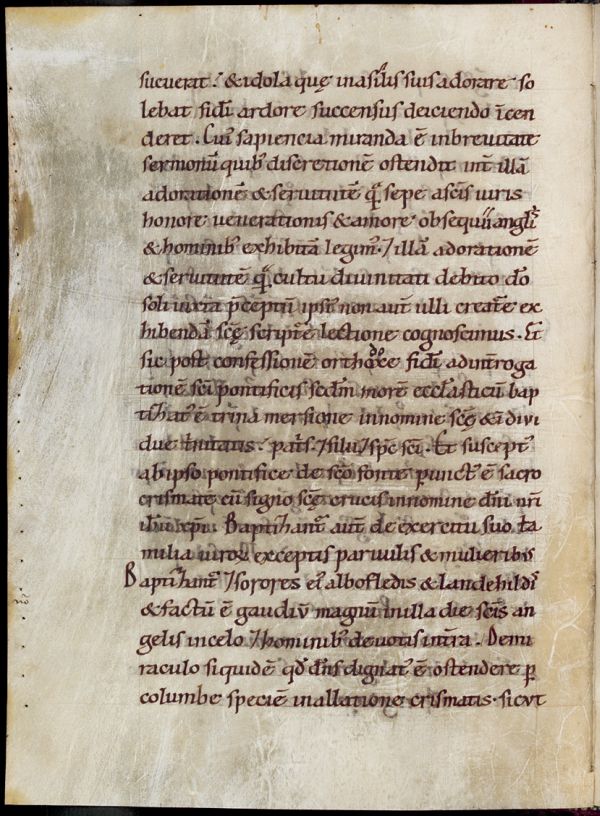 sueuerat. & idola quę in asilis suis adorare so
lebat fidi ardore succensus deiciendo īcen
deret. Cui' sapiencia miranda ē in breuitate
sermonū quib; discretionē ostendit int illā
adorationē & seruitutē quā sepe a scis iuris
honore uenerationis & amore obsequii anglis
& hominib; exhibitā legim'. ⁊ illā adorationē
& seruitutē quā cultu diuinitati debito dō
soli iuxta p̄ceptū ipsi' non aut ulli creat'e ex
hibendā scę script'e lectione cognoscimus. Et
sic post confessionē orthodoxe fidi ad int'roga
tionē sci pontificis scdm morē eccl'asticū bap
tizat' ē trina mersione in nomine scę & indiui
due trinitatis. patris ⁊ filii ⁊ spc sci. Et suscept'
ab ipso pontifice de sco fonte punct' ē sacro
crismate cū signo scę crucis in nomine dni nri
ihu xpi. Baptizant' aut de exercitu suo tria
milia uiroꝝ exceptis paruulis & mulieribus
Baptizant' ⁊ sorores ei' albofledis & landehildis
& factū ē gaudiū magnū in illa die scis an
gelis in celo ⁊ hominib; deuotis in t'ra. De mi
raculo siquidē qd dns dignat' ē ostendere p
columbe speciē in allatione crismatis. sicut